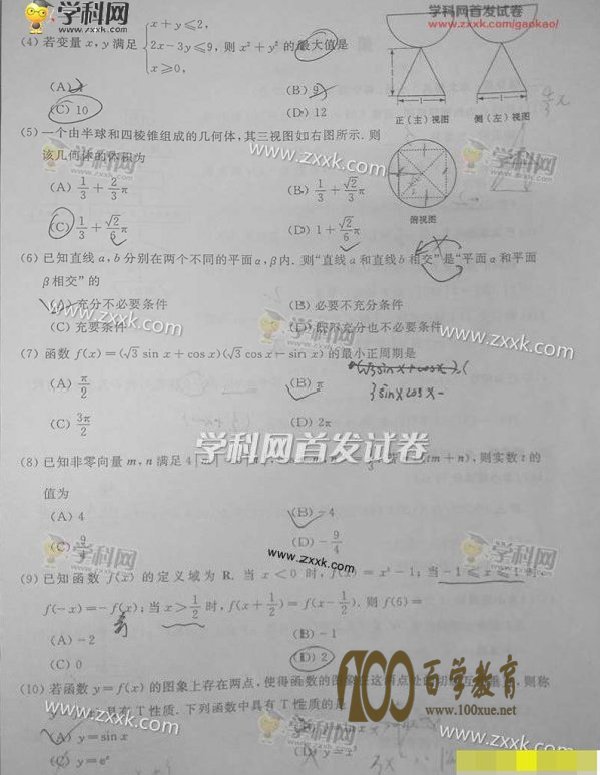 学科网
www.zxxk.com
学科网首发试卷
www.zxxk.com/gaokao/
x+y≤2,
(4) 若变量 x, y 满足 2x-3y≤9, 则 x²+y² 的最大值是
x≥0,
(A) 4 (B) 9
(C) 10 (D) 12
正(主)视图 侧(左)视图
(5) 一个由半球和四棱锥组成的几何体, 其三视图如右图所示. 则
该几何体的体积为
学科网 www.zxxk.com
(A) 1/3+2/3π (B) 1/3+√2/3π
(C) 1/3+√2/6π (D) 1+√2/6π
俯视图
(6) 已知直线 a, b 分别在两个不同的平面 α, β 内. 则“直线 a 和直线 b 相交”是“平面 α 和平面
β 相交”的
(A) 充分不必要条件 (B) 必要不充分条件
(C) 充要条件 (D) 既不充分也不必要条件
www.zxxk.com 学科网 www.zxxk.com
(7) 函数 f(x)=(√3 sin x+cos x)(√3 cos x-sin x) 的最小正周期是
(A) π/2 (B) π
(C) 3π/2 (D) 2π
学科网首发试卷
(8) 已知非零向量 m, n 满足 4 tm+n), 则实数 t 的
值为
(A) 4 (B) -4
(C) 9/4 (D) -9/4
学科网 www.zxxk.com 学科网
(9) 已知函数 f(x) 的定义域为 R. 当 x<0 时, f(x)=x³-1; 当 -1≤x≤1 时,
f(-x)=-f(x); 当 x>1/2 时, f(x+1/2)=f(x-1/2). 则 f(6)=
(A) -2 (B) -1
(C) 0 (D) 2
100 百学教育
www.100xue.net
(10) 若函数 y=f(x) 的图象上存在两点, 使得函数的图象在这两点处的切线互相垂直, 则称
具有 T 性质. 下列函数中具有 T 性质的是
www.zxxk.com 学科网 www.zxxk.com
(A) y=sin x
(C) y=eˣ (D) y=x³